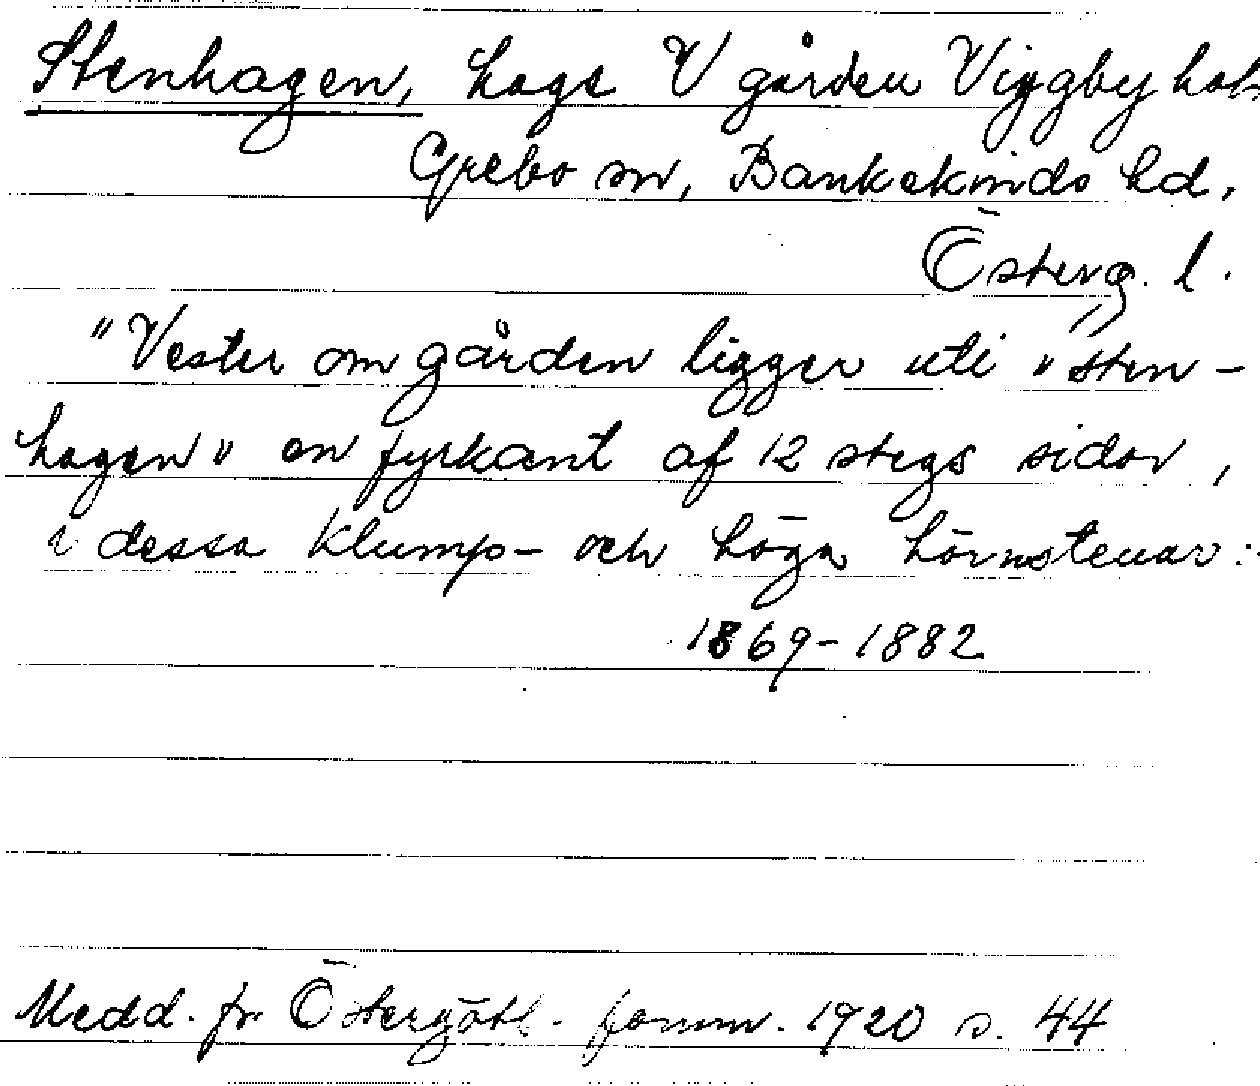 Stenhagen, hage V gården Viggbyhol
Grebo sn, Bankekinds hd,
Österg. l.
"Vester om gården ligger uti "sten-
hagen" en fyrkant af 12 stegs sidor,
i dessa klump- och höga hörnstenar:
1869-1882
Medd. fr. Östergötl. fornm. 1920 s. 44